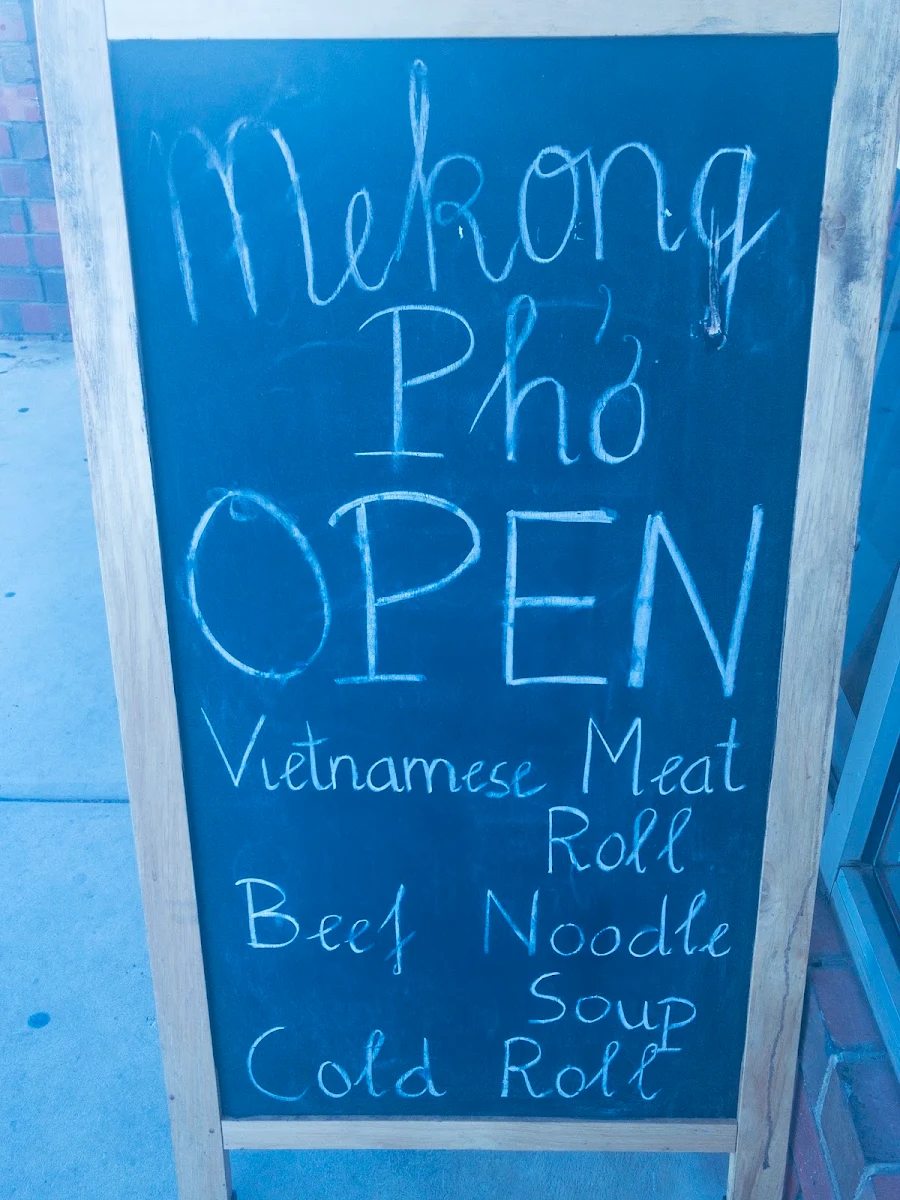 Mekong
Phở
OPEN
Vietnamese Meat
Roll
Beef Noodle
Soup
Cold Roll